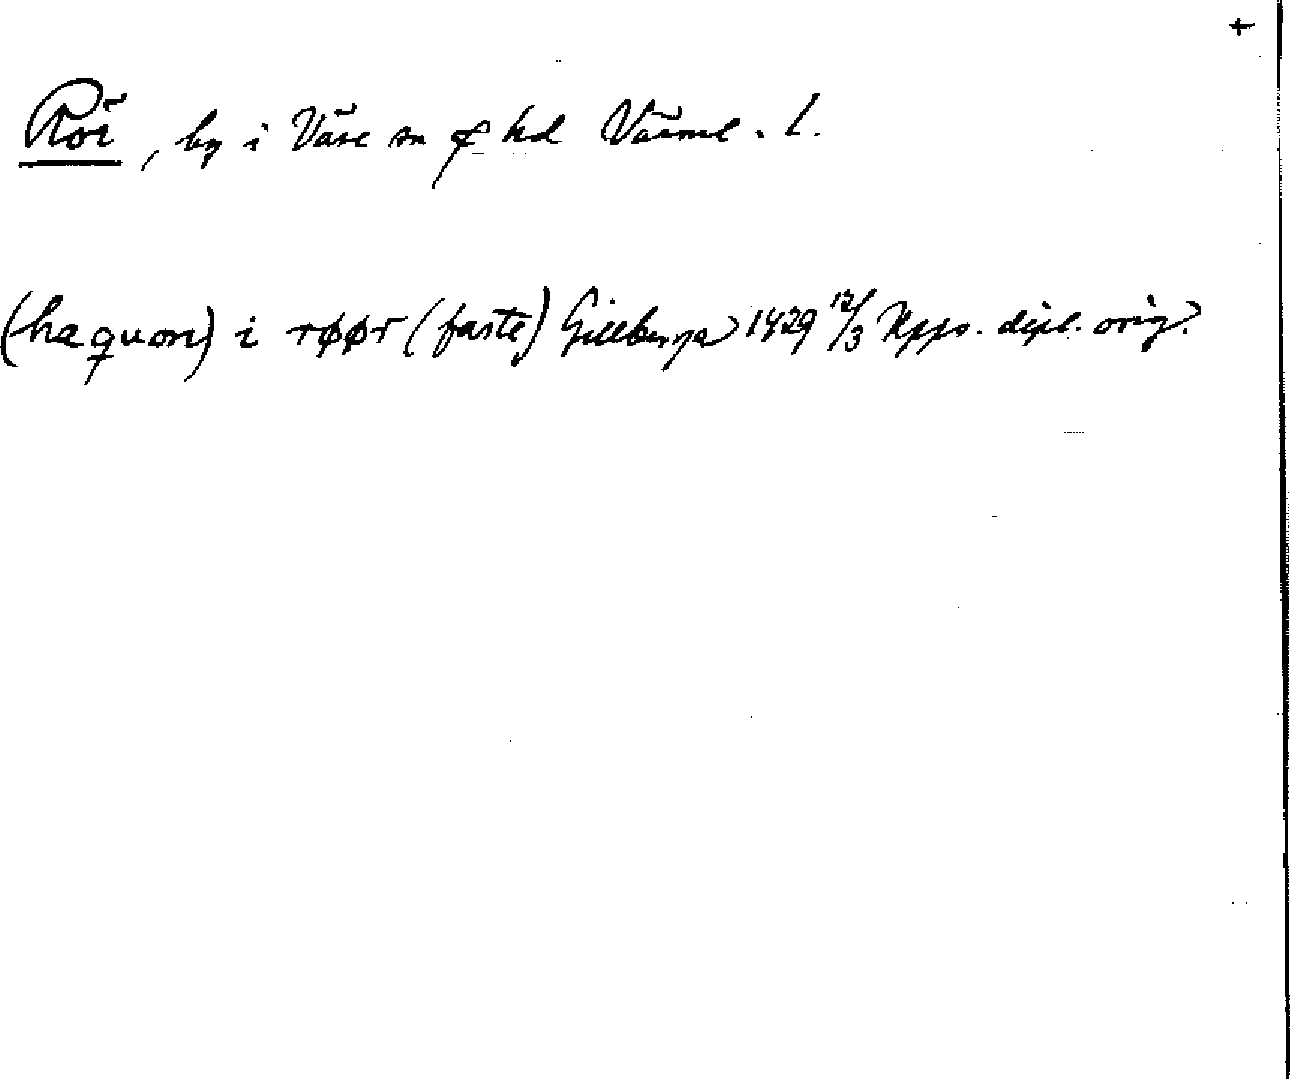 +
Rör, by i Väse sn o hd Värml. l.
(haquon) i røør (faste) Gillberga 1429 12/3 Upps. dipl. orig.